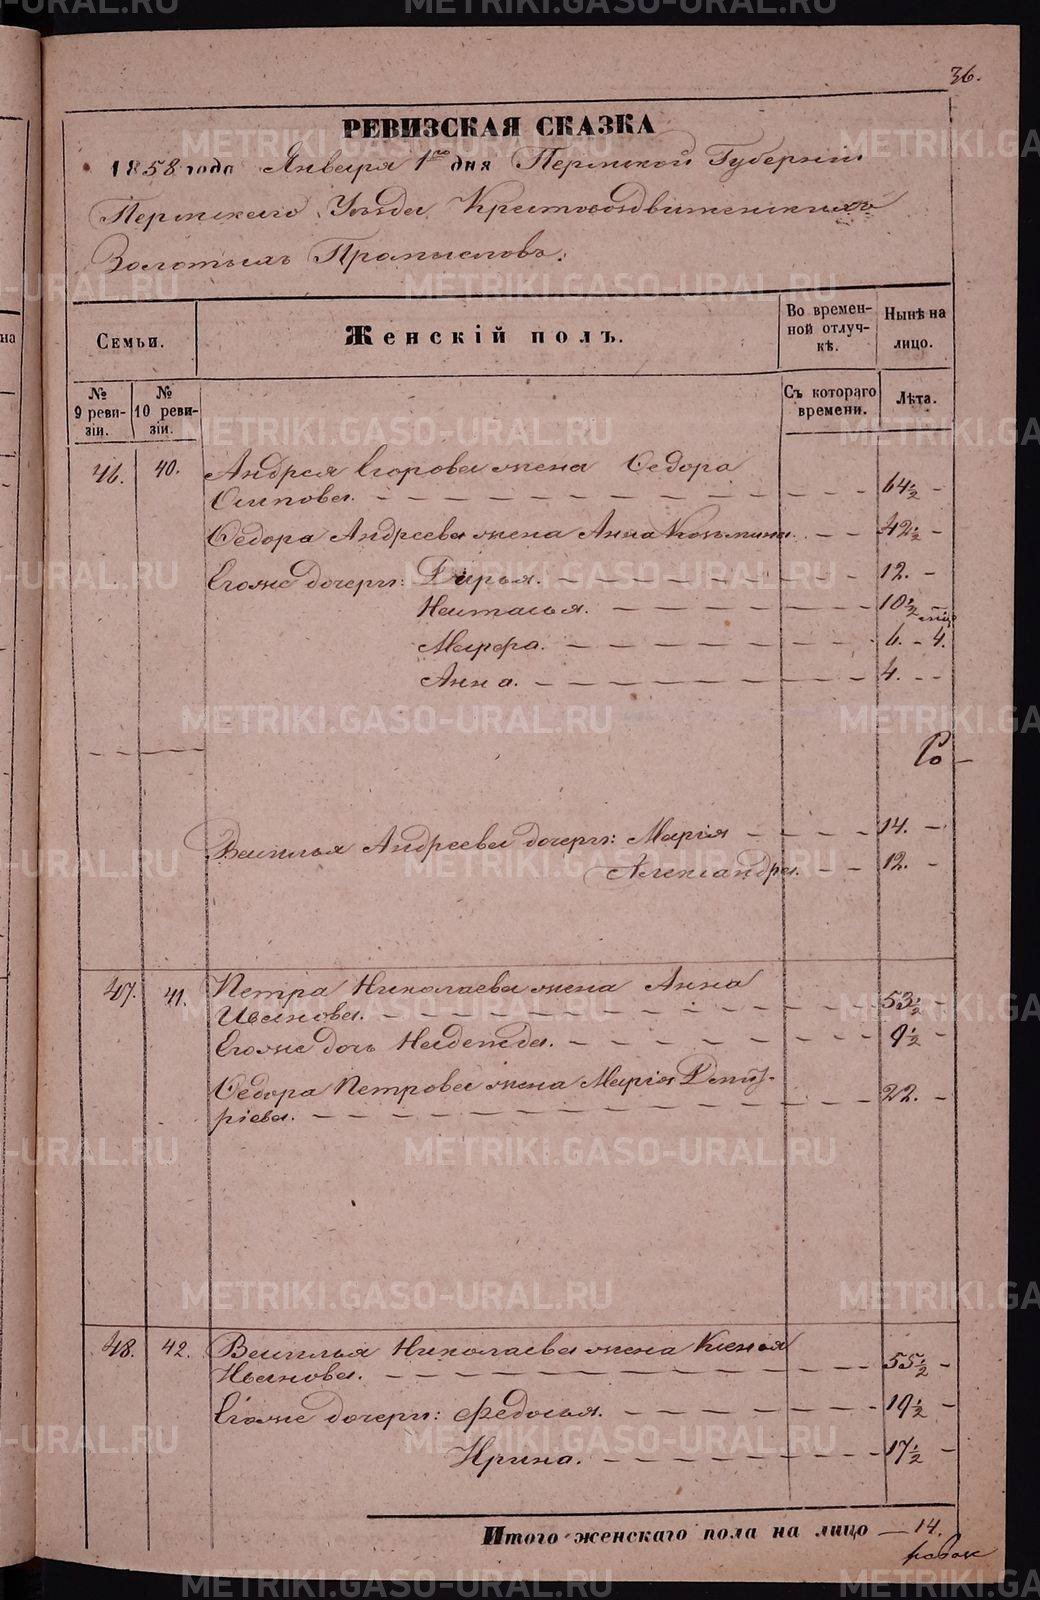 36.
РЕВИЗСКАЯ СКАЗКА
1858 года Января 1го дня Пермской Губернiи
Пермскаго Уѣзда Крестовоздвиженскихъ
Золотыхъ Промысловъ.
Семьи.
Женскiй полъ.
Во времен-
ной отлуч-
кѣ.
Нынѣ на
лицо.
№
9 реви-
зiи.
№
10 реви-
зiи.
Съ котораго
времени.
Лѣта.
46. 40. Андрея Егорова жена Ѳедора
Осипова. 64½
Ѳедора Андреева жена Анна Козьмина 42½
Егоже дочери: Дарья. 12.
Наталья. 10½
Марфа. 6. - 4.
Анна. 4.
Василья Андреева дочери: Марiя 14.
Александра. 12.
47. 41. Петра Николаева жена Анна
Иванова. 53½
Егоже дочь Надежда. 9½
Ѳедора Петрова жена Марiя Дмит-
рiева. 22.
48. 42. Василья Николаева жена Ксенья
Иванова. 55½
Егоже дочери: Федосья. 19½
Ирина. 17½
Итого женскаго пола на лицо 14.
METRIKI.GASO-URAL.RU